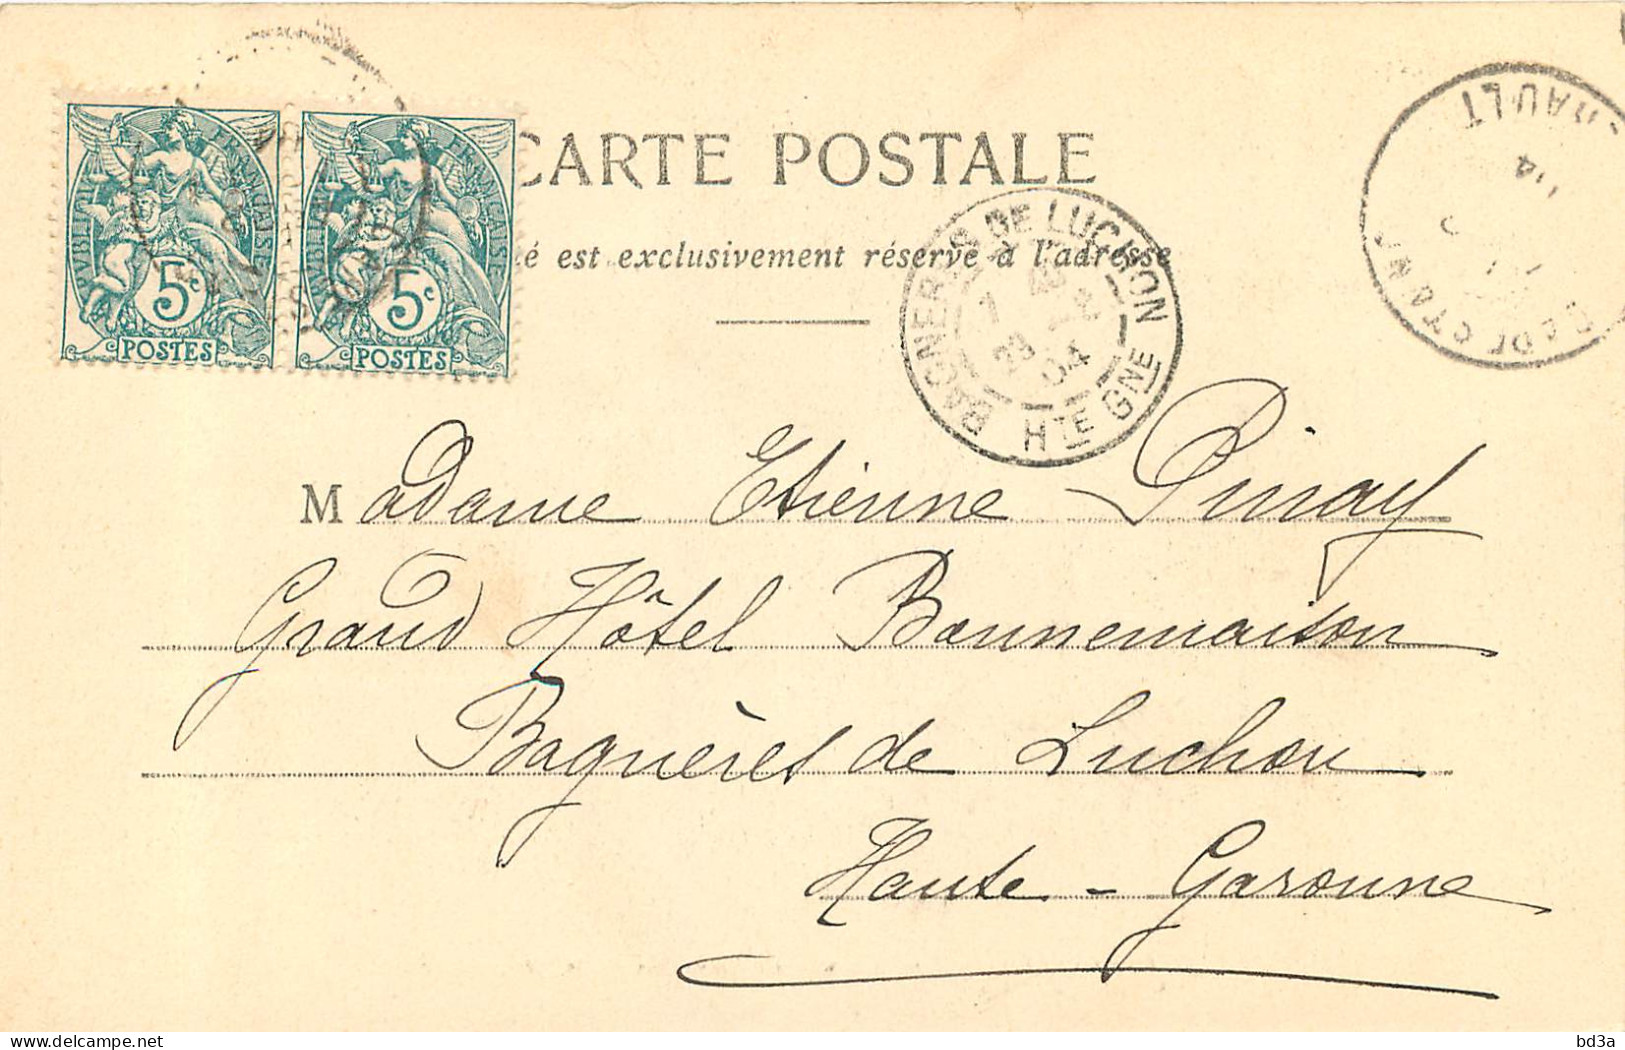 RÉPUBLIQUE FRANÇAISE
5c
POSTES
RÉPUBLIQUE FRANÇAISE
5c
POSTES
CARTE POSTALE
est exclusivement réservé à l'adresse
BAGNERES DE LUCHON
23
04
HTE GNE
04
Madame Etienne Pinay
Grand Hôtel Bonnemaison
Bagnères de Luchon
Haute-Garonne
bd3a